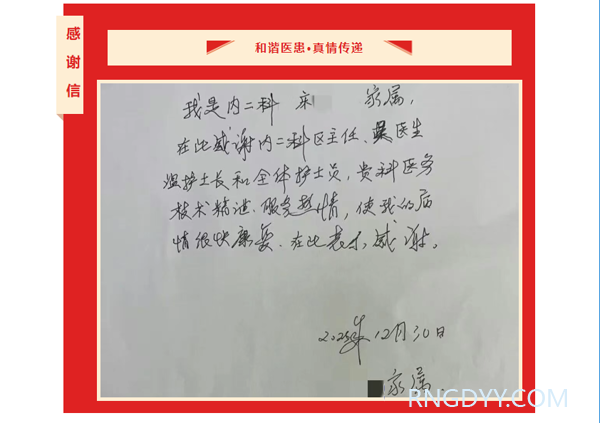 感谢信
和谐医患·真情传递
我是内二科 宋 家属，
在此感谢内二科区主任、吴医生
温护士长和全体护士员，贵科医务
技术精湛、服务热情，使我的病
情很快康复、在此表示感谢。
12月30日
家属
RNGDYY.COM